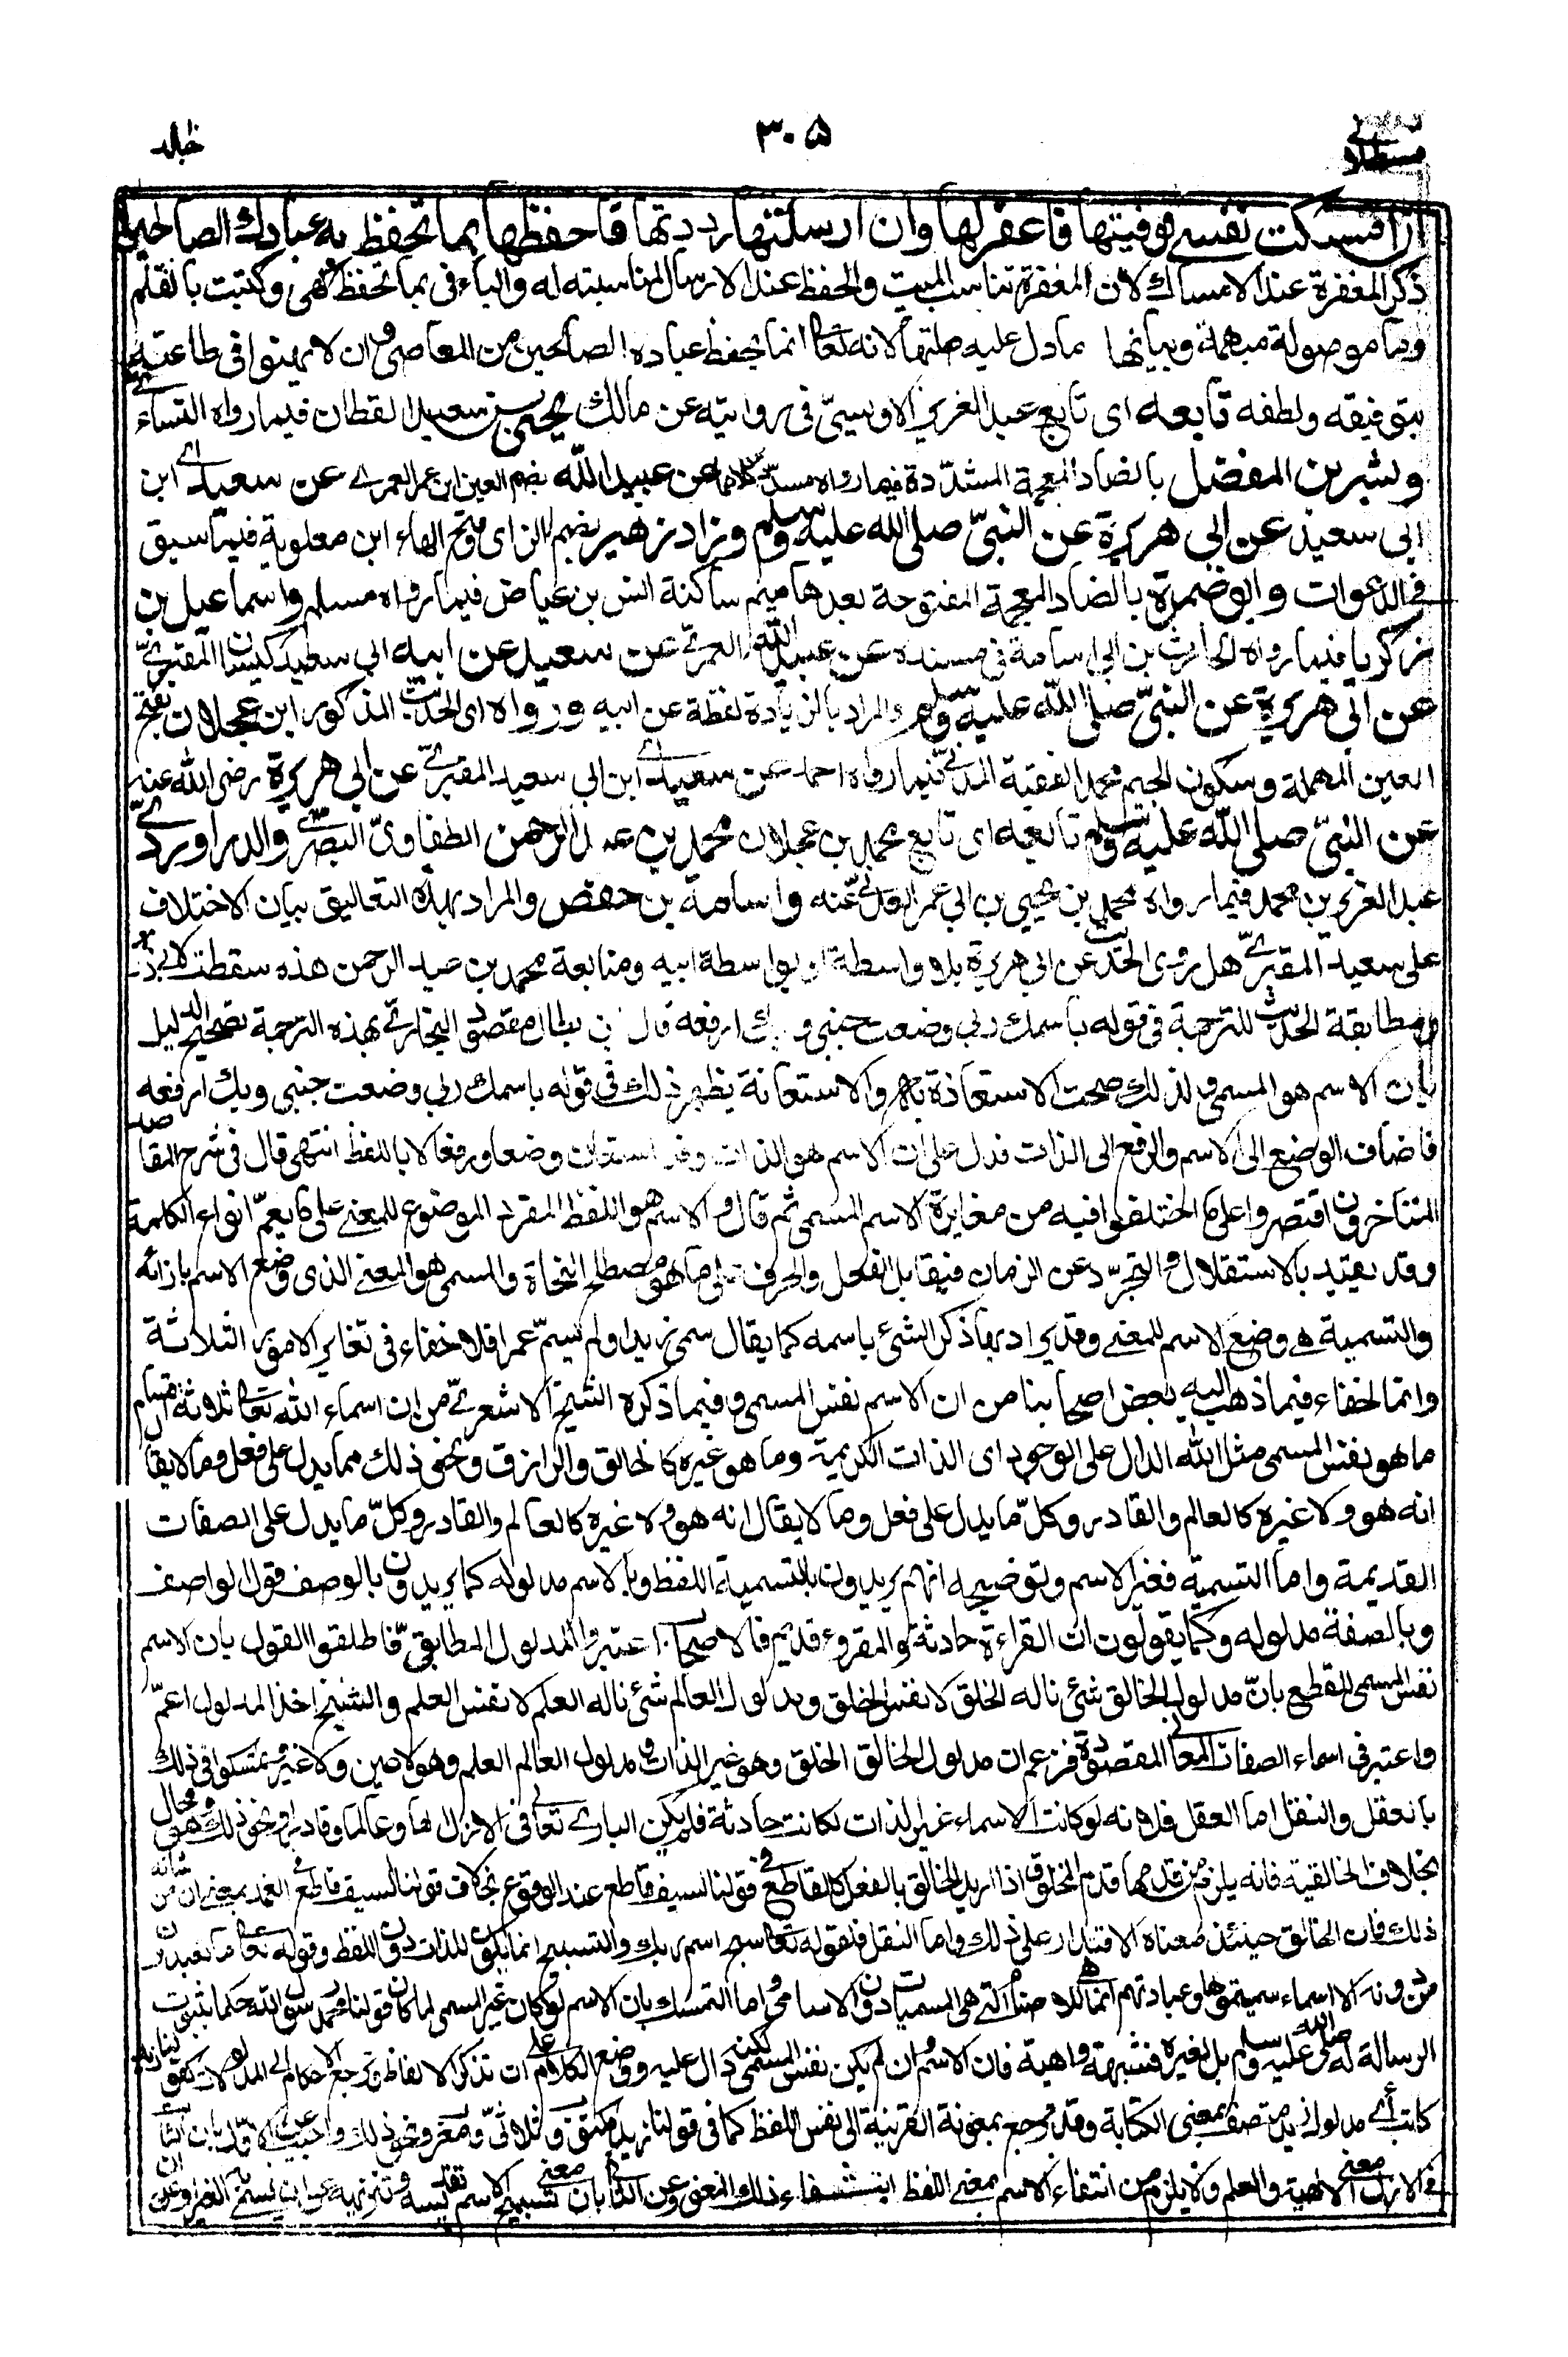 قسطلاني
٣٠٥
خالد
ان امسكت نفسي فوفيتها فاغفر لها وان ارسلتها رددتها فاحفظها بما تحفظ به عبادك الصالحين
ذكر المغفرة عند الامساك لان المغفرة تناسب الميت والحفظ عند الارسال لمناسبته له والباء في بما تحفظ كهي في كتبت بالقلم
وما موصولة مبهمة وبيانها ما دل عليه صلتها لانه تعالى انما يحفظ عباده الصالحين من المعاصي وان لا يهنوا في طاعته
بتوفيقه ولطفه تابعه اى تابع عبد العزيز الاويسيّ في روايته عن مالك يحيى بن سعيد القطان فيما رواه النساءي
وبشر بن المفضل بالضاد المعجمة المشدّدة فيما رواه مسدّد كلاهما عن عبيد الله بضم العين ابن عمر العمري عن سعيد اي ابن
ابي سعيد عن ابي هريرة عن النبيّ صلى الله عليه وسلم وزاد زهير بضم الزاى وفتح الهاء ابن معاوية فيما سبق
في الدعوات وابو ضمرة بالضاد المعجمة المفتوحة بعدها ميم ساكنة انس بن عياض فيما رواه مسلم واسماعيل بن
زكريا فيما رواه الحارث بن ابي اسامة في مسنده عن عبيد الله العمري عن سعيد عن ابيه ابي سعيد كيسان المقبريّ
عن ابي هريرة عن النبيّ صلى الله عليه وسلم والمراد بالزيادة لفظة عن ابيه ورواه اى الحديث المذكور ابن عجلان بفتح
العين المهملة وسكون الجيم محمد الفقيه المدني فيما رواه احمد عن سعيد اي ابن ابي سعيد المقبريّ عن ابي هريرة رضى الله عنه
عن النبيّ صلى الله عليه وسلم تابعه اى تابع محمد بن عجلان محمد بن عبد الرحمن الطفاويّ البصري والدراورديّ
عبد العزيز بن محمد فيما رواه محمد بن يحيى بن ابي عمر العدني عنه واسامة بن حفص والمراد بهذه التعاليق بيان الاختلاف
على سعيد المقبريّ هل روى الحديث عن ابي هريرة بلا واسطة او بواسطة ابيه ومتابعة محمد بن عبد الرحمن هذه سقطت لابي ذر
ومطابقة الحديث للترجمة في قوله باسمك ربي وضعت جنبي وبك ارفعه قال ابن بطال مقصود البخاري بهذه الترجمة تصحيح الدليل
بان الاسم هو المسمى فلذلك صحت الاستعاذة به والاستعانة يظهر ذلك في قوله باسمك ربي وضعت جنبي وبك ارفعه
فاضاف الوضع الى الاسم والرفع الى الذات فدل على ان الاسم هو الذات وقد استعان وضعا ورفعا لا باللفظ انتهى قال في شرح المقاصد
المتأخرون اقتصروا على ما اختلفوا فيه من مغايرة الاسم المسمى ثم قال والاسم هو اللفظ المفرد الموضوع للمعنى على ما يعمّ انواع الكلمة
وقد يقيد بالاستقلال والتجرّد عن الزمان فيقابل الفعل والحرف على ما هو مصطلح النحاة والمسمى هو المعنى الذى وضع الاسم بازائه
والتسمية هي وضع الاسم للمعنى وقد يراد بها ذكر الشئ باسمه كما يقال سمى زيدا ولم يسمّ عمرا فلا خفاء في تغاير الامور الثلاثة
وانما الخفاء فيما ذهب اليه بعض اصحابنا من ان الاسم نفس المسمى وفيما ذكره الشيخ الاشعريّ من ان اسماء الله تعالى ثلاثة اقسام
ما هو نفس المسمى مثل الله الدال على الوجود اى الذات الكريمة وما هو غيره كالخالق والرازق ونحو ذلك مما يدل على فعل وما لا يقال
انه هو ولا غيره كالعالم والقادر وكلّ ما يدل على فعل وما لا يقال انه هو ولا غيره كالعالم والقادر وكلّ ما يدل على الصفات
القديمة واما التسمية فغير الاسم وتوضيحه انهم يريدون بالتسمية اللفظ وبالاسم مدلوله كما يريدون بالوصف قول الواصف
وبالصفة مدلوله وكما يقولون ان القراءة حادثة والمقروء قديم فالاصحاب اعتبروا المدلول المطابقيّ فاطلقوا القول بان الاسم
نفس المسمى للقطع بانّ مدلول الخالق شئ ناله الخلق لا نفس الخلق ومدلول العالم شئ ناله العلم لا نفس العلم والشيخ اخذ المدلول اعمّ
واعتبر في اسماء الصفات المعاني المقصودة فزعم ان مدلول الخالق الخلق وهو غير الذات ومدلول العالم العلم وهو لا عين ولا غير وتمسكوا في ذلك
بالعقل والنقل اما العقل فلانه لو كانت الاسماء غير الذات لكانت حادثة فلم يكن الباري تعالى في الازل الها وعالما وقادرا ونحو ذلك وهو محال
بخلاف الخالقية فانه يلزم من قدمها قدم المخلوق اذا اريد الخالق بالفعل كالقاطع في قولنا السيف قاطع عند الوقوع بخلاف قولنا السيف قاطع في الغمد بمعنى ان من شانه
ذلك فان الخالق حينئذ معناه الاقتدار على ذلك واما النقل فلقوله تعالى سبح اسم ربك والتسبيح انما يكون للذات دون اللفظ وقوله تعالى ما تعبدون
من دونه الا اسماء سميتموها وعبادتهم انما هي للاصنام التي هي المسميات دون الاسامي واما التمسك بان الاسم لو كان غير المسمى لما كان قولنا محمد رسول الله حكما بثبوت
الرسالة له صلى الله عليه وسلم بل لغيره فشبهة واهية فان الاسم وان لم يكن نفس المسمى لكنه دال عليه ووضع الكلام على ان تذكر الالفاظ وترجع الاحكام الى المدلولات كقولنا زيد
كاتب اي مدلول زيد متصف بمعنى الكتابة وقد ترجع بمعونة القرينة الى نفس اللفظ كما في قولنا زيد مكتوب وثلاثيّ ومعرب ونحو ذلك واجيب عن الاول بان الثابت
في الازل معنى الالهية والعلم ولا يلزم من انتفاء الاسم بمعنى اللفظ انتفاء ذلك المعنى وعن الثاني بان معنى تسبيح الاسم تقديسه وتنزيهه